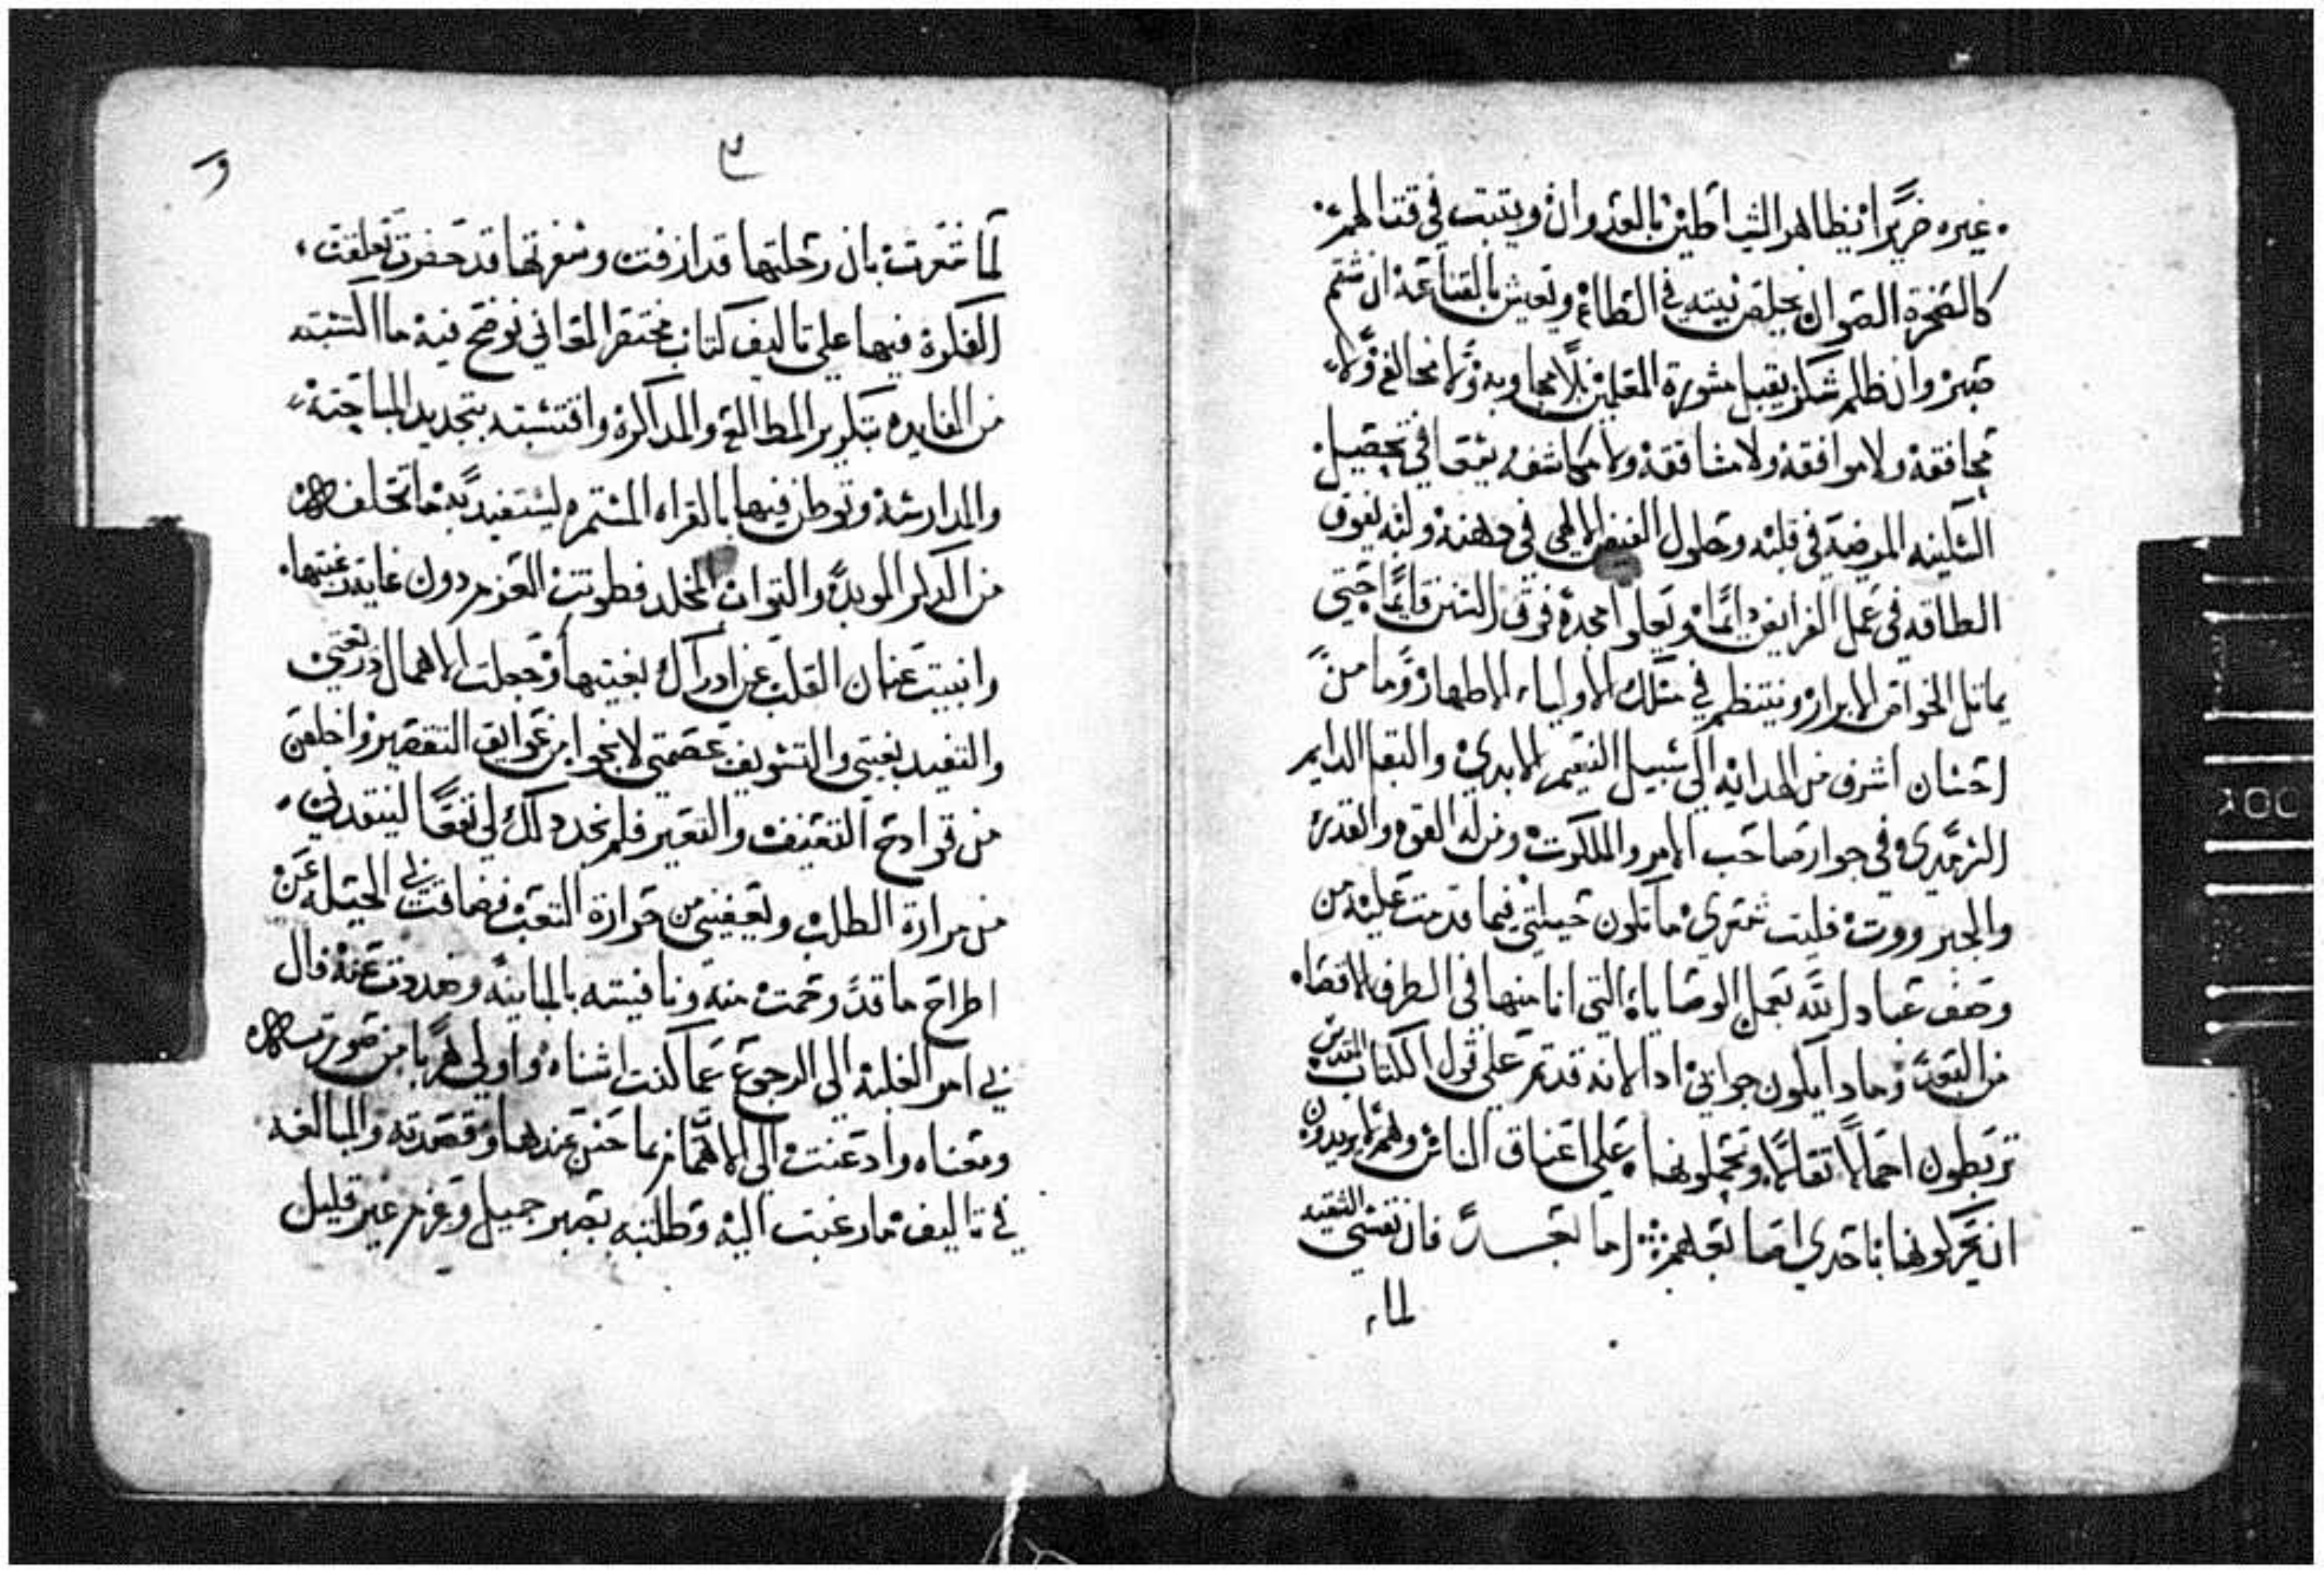 غيره ضريرا يظاهر الشياطين بالعدوان ويثبت في قتالهم
كالصخرة الصوان يخلص نيته في الطاعه ويعيش بالقناعه ان شتم
صبر وان ظلم شكر يقبل مشورة المعلمين بلا مجاوبه ولا مخالفه ولا
محاققه ولا موافقه ولا مشاققه ولا مكاشفه يثقف في تحصيل
السكينه المرضيه في قلبه وحلول الفيض الالهي في دهنه ولبه يفوق
الطاقه في عمل الفرايض دايما ويعلوا مجده فوق السنن قايما حتي
يماثل الخواص الابرار وينتظم في سلك الاولياء الاطهار وما من
احسان اشرف من الهدايه الي سبيل النعيم الابدي والبقا الدايم
السرمدي وفي جوار صاحب الامر والملكوت ومن له القوه والقدره
والجبرووت فليت شعري ما تكون حيلتي فيما قدمت عليه من
وصف عباد الله بعمل الوصايا التي انا منها في الطرف الاقصاه
من البعد وما دا يكون جوابي ادا لانه قد تم علي قول الكتاب المقدس
تربطون احمالا ثقالا وتحملونها علي اعناق الناس وهم لا يريدون
ان يحركونها باحدي اصابعهم اما بعد فان نفسي الشقيه
لما
لما شعرت بان رحلتها قد ازفت وسفرتها قد حضرت تعلقت
الفكرة فيها علي تاليف كتاب مختصر المعاني نوضح فيه ما اكتسبته
من الفايده بتكرير المطالعه والمداكره واقتسبته بتجديد المباحته
والمدارسه وتوطن فيها بالقراه المستمره ليستفيد به ما تخلف
من الدكر الموبد والثواب المخلد فطويت العزم دون غاية رغبتها
واثنيت عنان القلب عن ادراك بغيتها وجعلت الاهمال دريعتي
والتفنيد بغيتي والتسويف عصمتي لانجوا من عوايق التقصير واخلص
من قوادح التعنيف والتعيير فلم يجد دلك لي نفعا لينقدني
من مرارة الطلب ويعفيني من حرارة التعب فضاقت بي الحيله عن
اطراح ما قد رحمت منه ونافيسته بالمباينه وصددت عنه فال
بي امر الغلبه الي الرجوع عما كنت اشناه واولي هربا من صورته
ومعناه وادعنت الي الاهتمام بما حسن عندها وقصدته والمبالغه
في تاليف ما رغبت اليه وطلبته بصبر جميل وعزم غير قليل